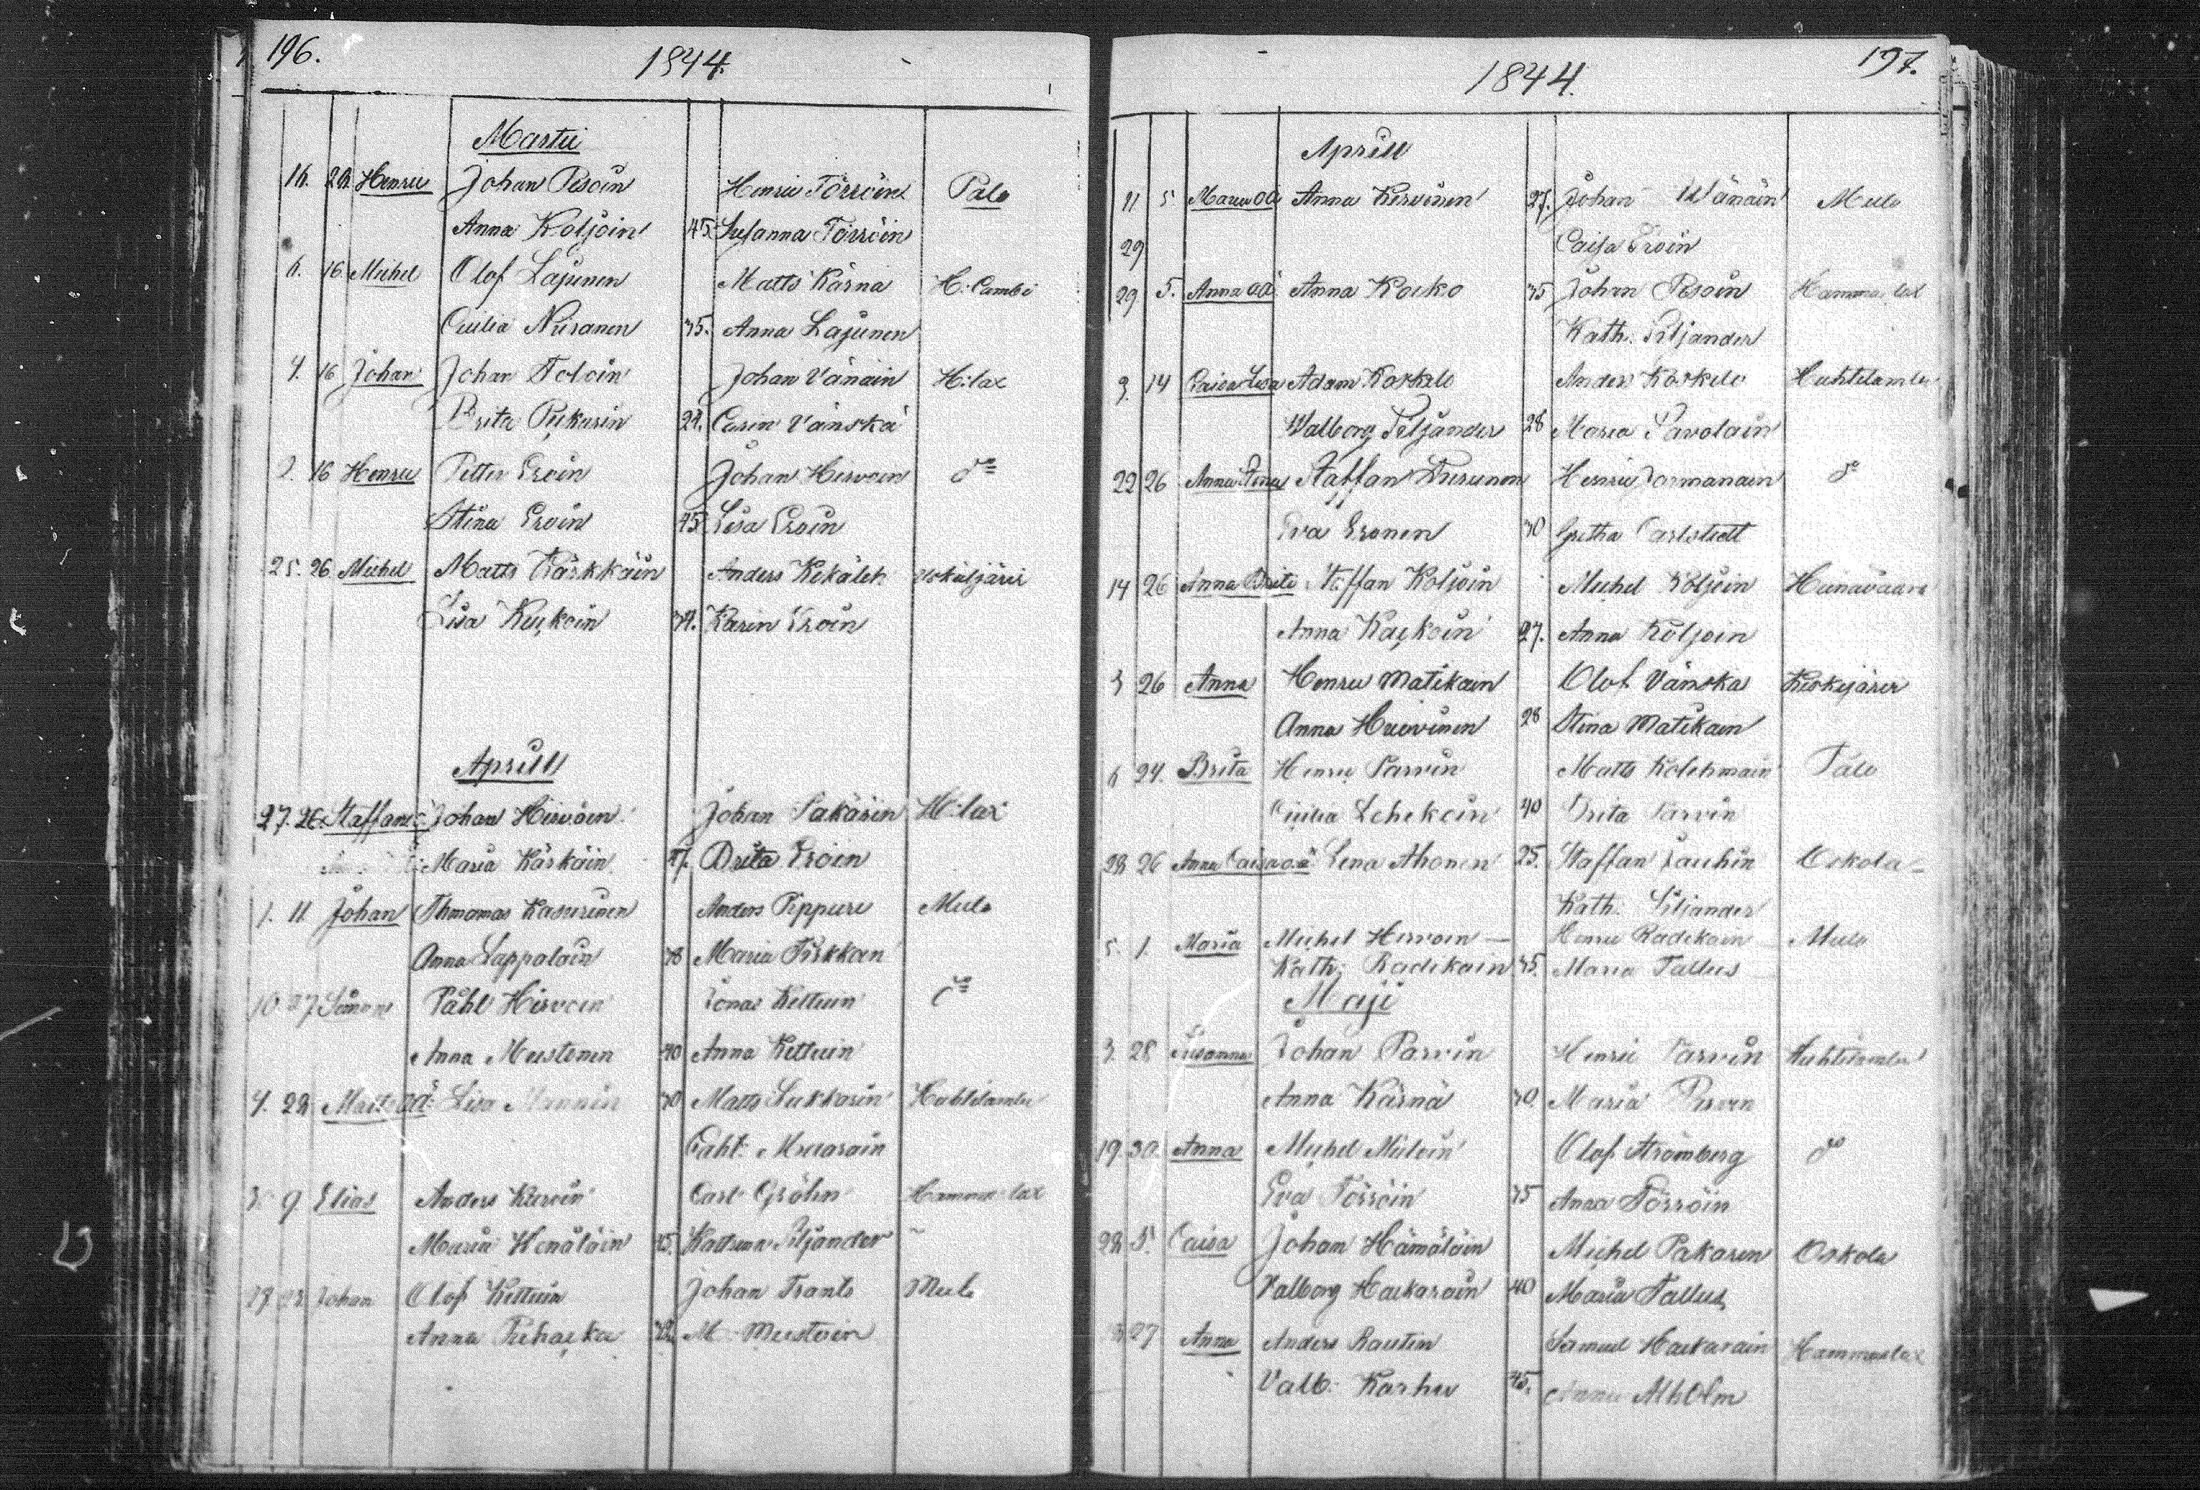 196.
1844.
Martii
16. 24. Henric Johan Pesoin Henric Törröin Palo
Anna Koljoin 45. Susanna Törröin
6. 16 Michel Olof Lajunen Matts Kärna H: Lambi
Cecilia Niiranen 35. Anna Lajunen
4. 16 Johan Johan Toloin Johan Vänäin H:lax
Brita Pukarin 24. Carin Vänskä
2. 16 Henric Petter Eroin Johan Hirvoin do
Stina Eroin 45 Lisa Eroin
25. 26 Michel Matts Kärkkäin Anders Kekäleh
Lisa Keckoin 34. Karin Eroin
Aprill
27. 26. Staffan Johan Hirvoin Johan Sakarin H:lax
Maria Kärkäin 27. Brita Eroin
1. 11 Johan Thmomas Kasurinen Anders Pippuri Mulo
Anna Lappalain 38 Maria Pirkkain
10 27 Simon Påhl Hirvoin Jonas Kettuin do
Anna Mustonen 40 Anna Kettuin
4. 22 oä Lisa Mannin 30 Matts Sukkarin Huhtilambi
9 Elias Anders Carl Gröhn Hammaslax
Maria Henäläin 35. Siljander
Johan Olof Kettuin Johan Tranto Mulo
Anna Puhacka M. Mustoin
197.
1844.
Aprill
11 5 Maria oä Anna Kervinen 27. Johan Wänäin Mulo
29 Caisa Eroin
29 5. Anna oä Anna Kocko 35 Johan Pesoin Hammaslax
Kath. Siljander
3. 14 Caisa Lisa Adam Koskelo Anders Koskelo Huhtilambi
Walborg Siljander 28 Maria Pavolain
22 26 Anna Stina Staffan Turunen Henric Jormanain do
Eva Eronen 30 Carlstedt
14 26 Anna Brita Staffan Koljoin Michel Koljoin Heinävaara
Anna Kackoin 27. Anna Koljoin
3 26 Anna Henric Matikain Olof Vänska Keskijärvi
Anna Huivinen 28 Stina Matikain
6 24. Brita Henric Parvin Matts Kolehmain Palo
Cecilia Lehikoin 40 Brita Parvin
26 Anna Caisa oä Lena Ahonen 25. Staffan Jauhin Oskola
Kath. Siljander
5. 1. Maria Michel Hirvoin Henric Radikain Mulo
Kath: Radikain 35. Maria Tallus
Maji
3. 28 Susanna Johan Parvin Henric Parvin Huhtilambi
Anna Kärnä 30. Maria
19. 30. Anna Michel Muloin Olof Strömberg do
Eva Törröin 35 Anna Törröin
5. Caisa Johan Hämäläin Michel Pakarin Oskola
Valborg Hackarain 40 Maria Tallus
27 Anna Anders Rautin Samuel Hackarain Hammaslax
Valb: Karhu 45. Ahlholm